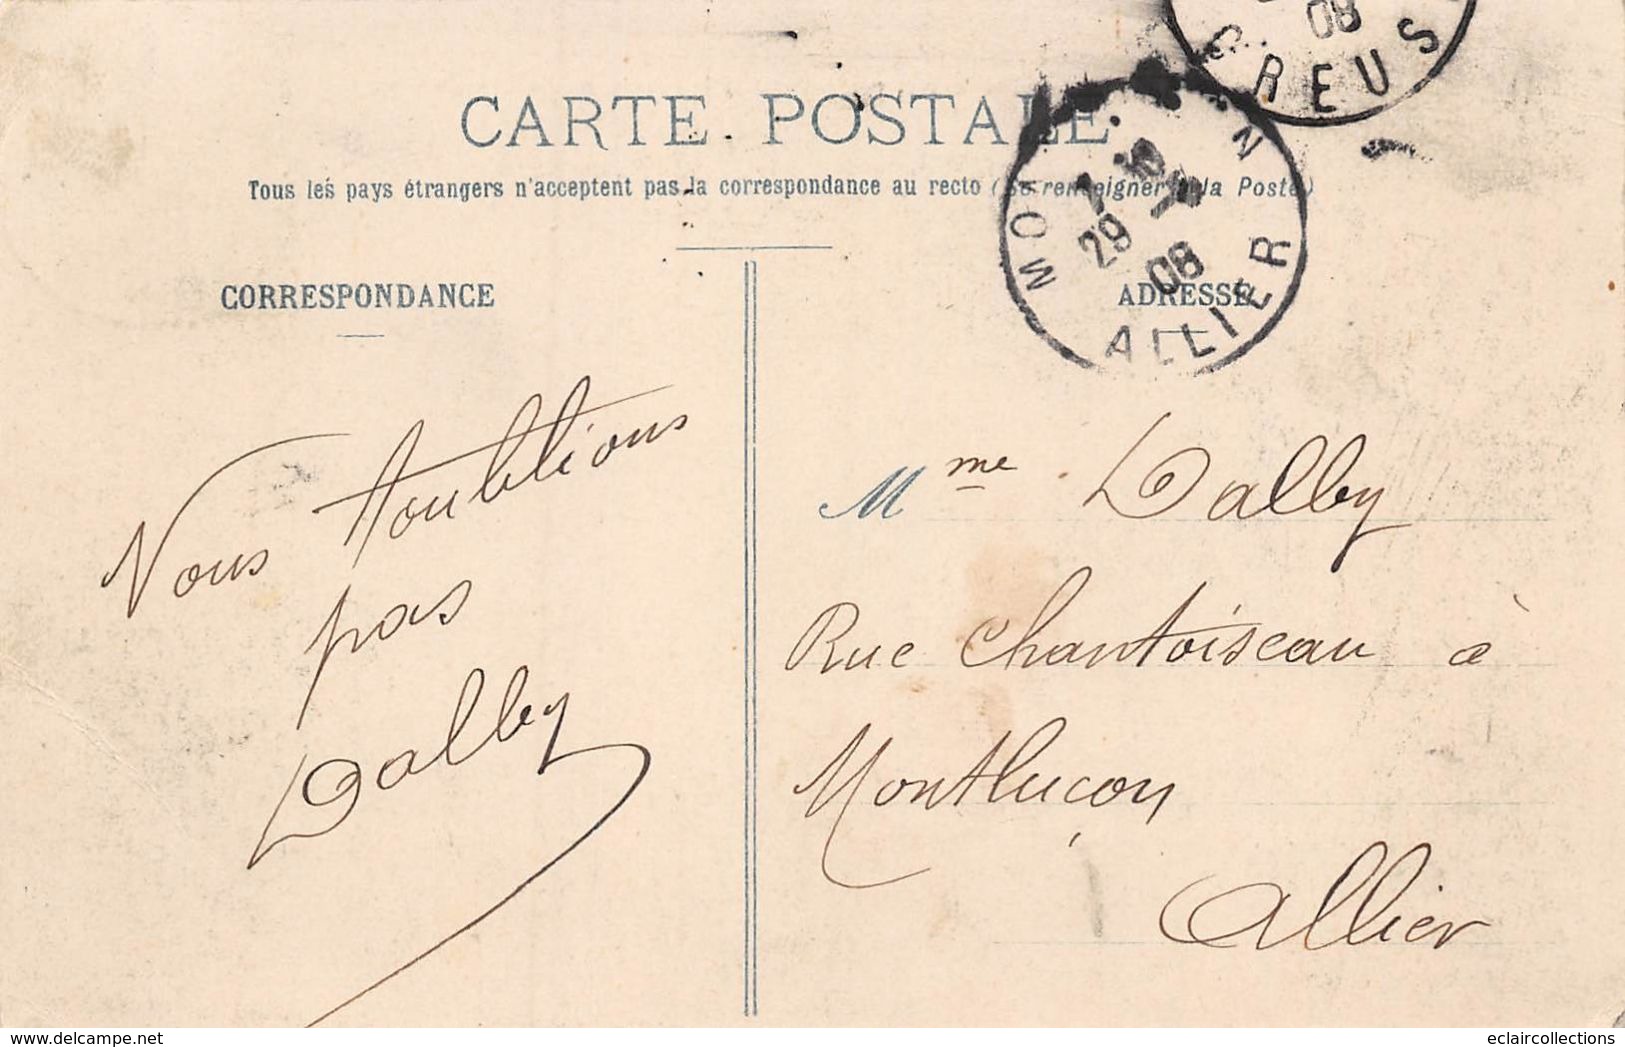 CREUS
08
CARTE POSTALE
Tous les pays étrangers n'acceptent pas la correspondance au recto (Se renseigner à la Poste)
29
08
ALLIER
CORRESPONDANCE
ADRESSE
Nous t'oublions
pas
Dalby
Mme Dalby
Rue Chantoiseau à
Montluçon
Allier
delcampe.net
eclaircollections